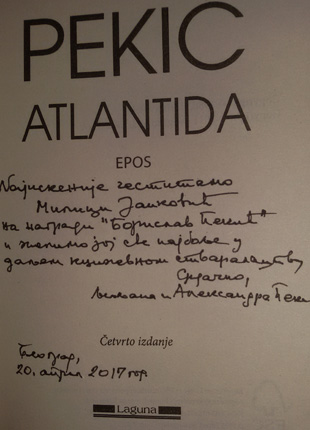 PEKIC
ATLANTIDA
EPOS
Најискреније честитамо
Милици Јанковић
на награди "Борислав Пекић"
и желимо јој све најбоље у
даљем књижевном стваралаштву
Срдачно,
Љиљана и Александра Пекић
Četvrto izdanje
Београд,
20. април 2017 год.
Laguna